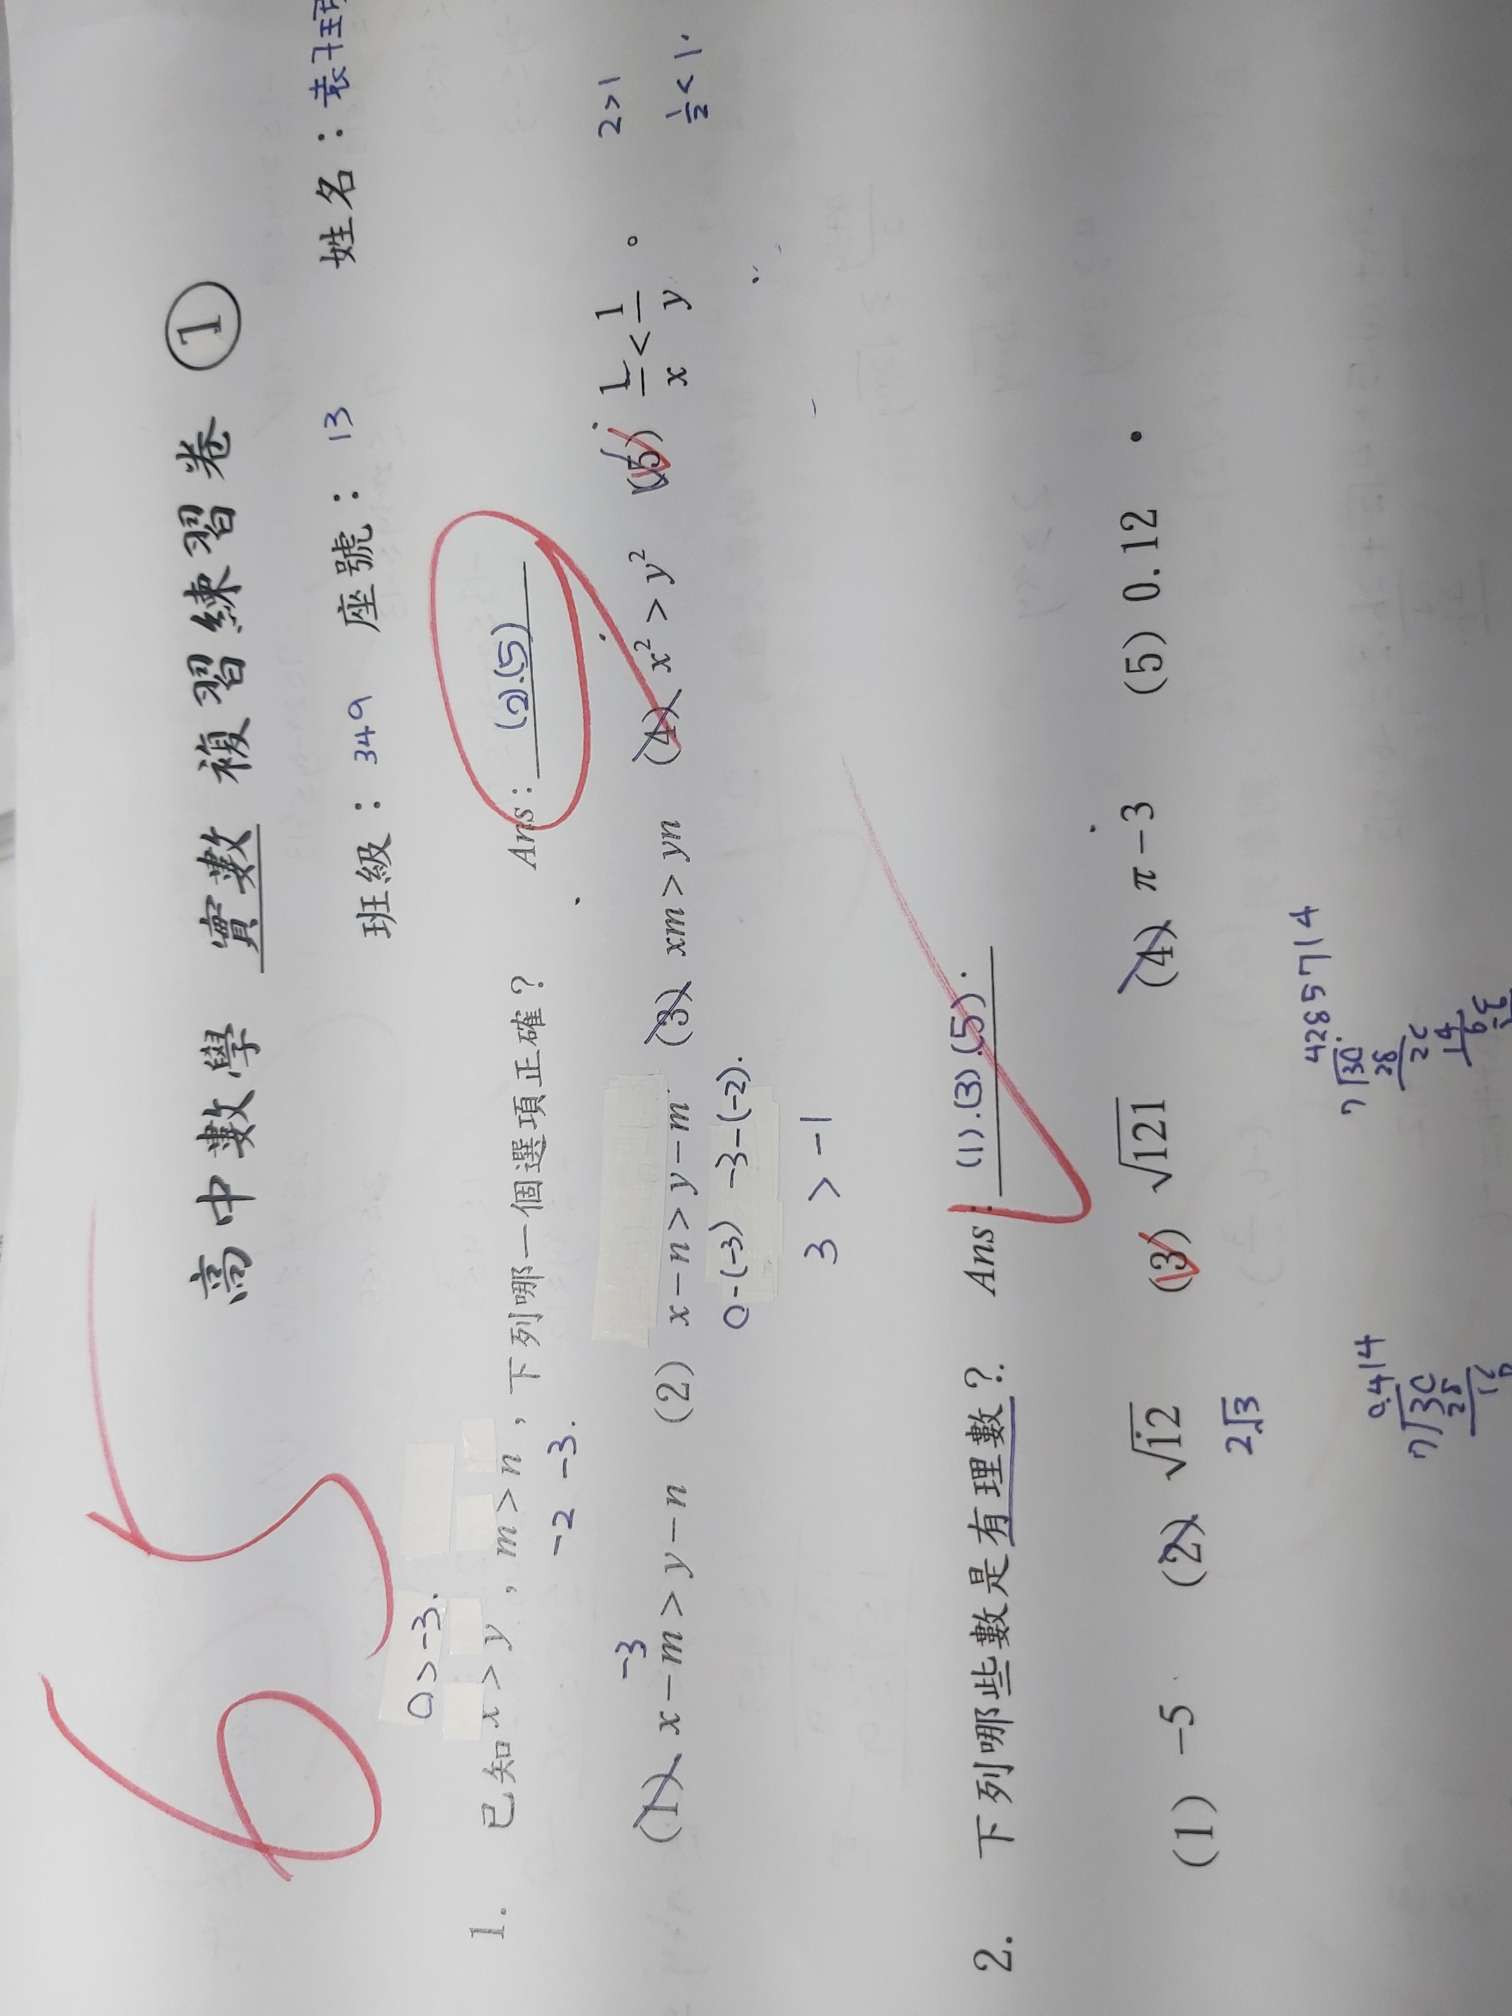 65
高中數學 實數 複習練習卷 ①
班級：349 座號：13 姓名：
0>-3.
1. 已知x>y，m>n，下列哪一個選項正確？ Ans：(2).(5)
-2 -3.
-3
2>1
(1) x-m>y-n (2) x-n>y-m (3) xm>yn (4) x²>y² (5) 1/x<1/y。
1/2<1.
0-(-3) -3-(-2).
3 > -1
2. 下列哪些數是有理數？ Ans：(1).(3).(5).
(1) -5 (2) √12 (3) √121 (4) π-3 (5) 0.12．
2√3
0.414
7√30
28
42857 14
7√30.
28
14